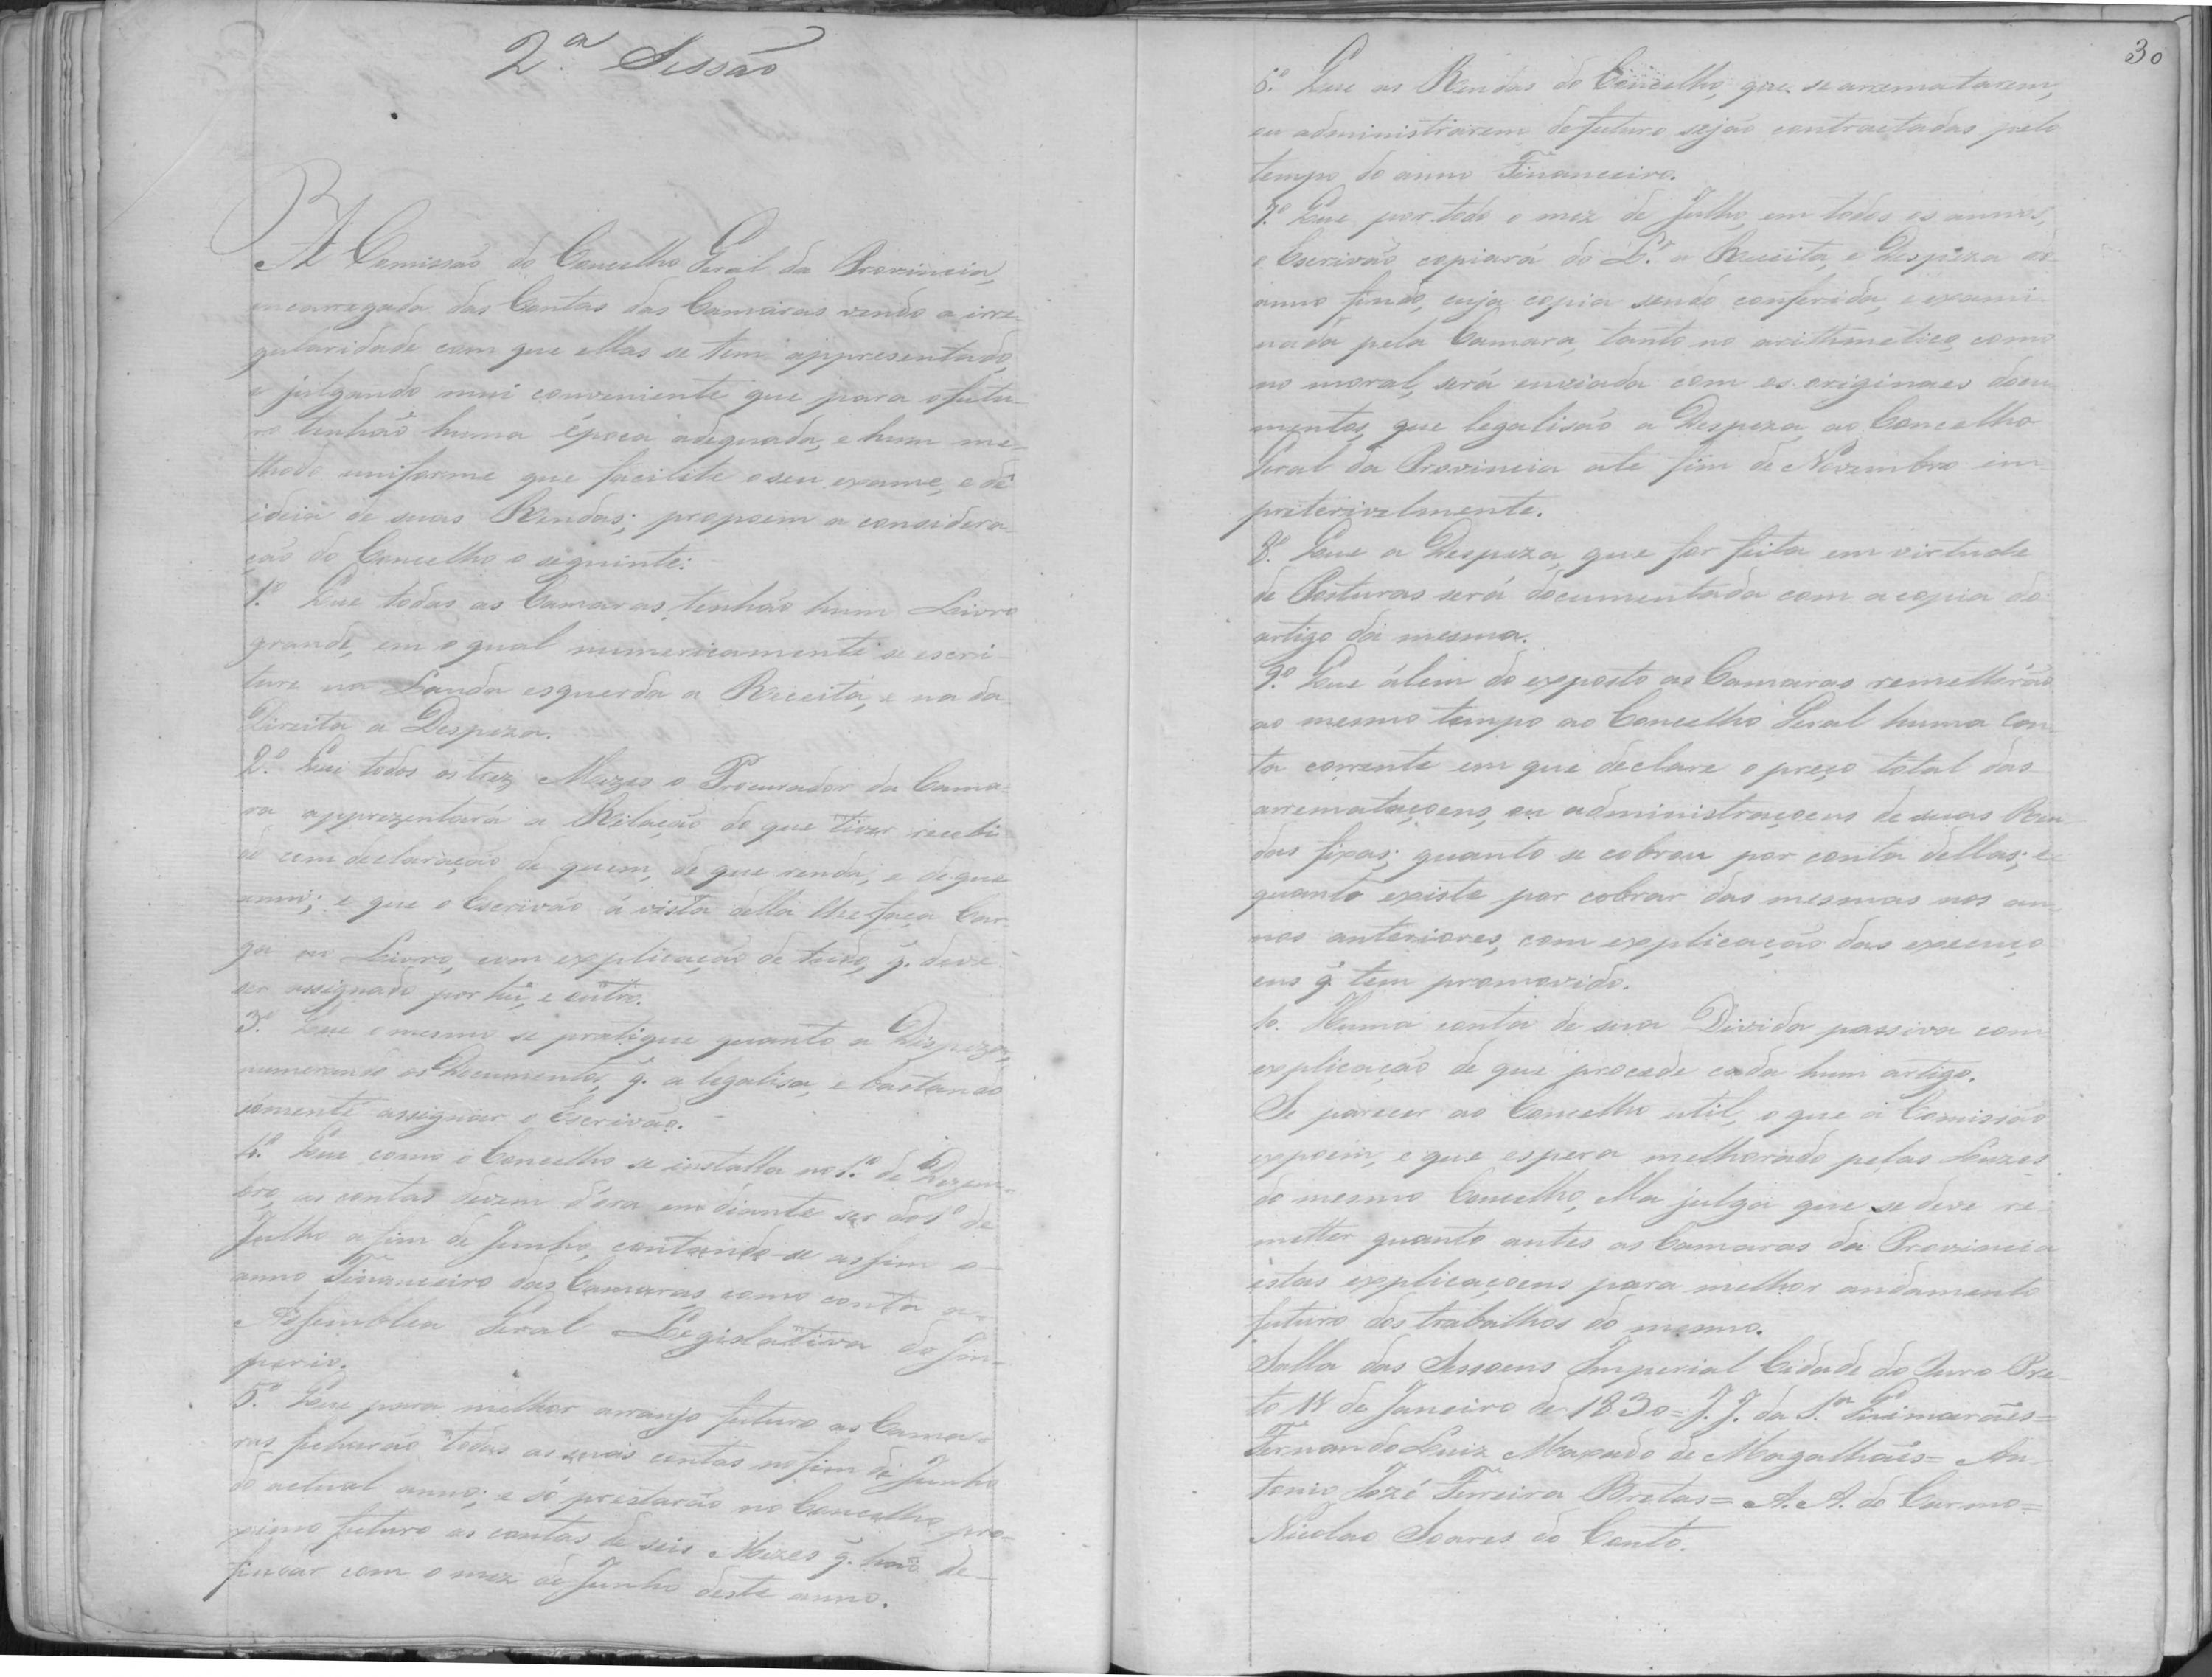 2.ª Sessão
A Comissão do Concelho Geral da Provincia,
encarregada das Contas das Camaras vendo a irre-
gularidade com que ellas se tem appresentado,
e julgando mui conveniente que para o futu-
ro tenhão huma época adequada, e hum me-
thodo uniforme que facilite o seu exame, e dê
ideia de suas Rendas; propoem a considera-
ção do Concelho o seguinte:
1.º Que todas as Camaras tenhão hum Livro
grande, em o qual numericamente se escri-
ture na Lauda esquerda a Receita, e na da
Direita a Despeza.
2.º Que todos os trez Mezes o Procurador da Cama-
ra apprezentará a Relação do que tiver recebi-
do com declaração de quem, de que renda, e de que
anno; e que o Escrivão á vista della lhe faça Car-
ga no Livro, com explicação de tudo, q. deve
ser assignado por hũ, e outro.
3.º Que o mesmo se pratique quanto a Despeza,
numerando os Documentos, q. a legalisa, e bastando
sómente assignar o Escrivão.
4.º Que como o Concelho se installa no 1.º de Dezem-
bro, as contas devem d'ora em diante ser do 1.º de
Julho a fim de Junho, contando-se assim o
anno Financeiro das Camaras, como conta a
Assemblea Geral Legislativa do Im-
perio.
5.º Que para melhor arranjo futuro as Cama-
ras fecharão todas as suas contas no fim de Junho
do actual anno; e só prestarão no Concelho pro-
ximo futuro as contas de seis Mezes q. hão de
findar com o mez de Junho deste anno.
30
6.º Que as Rendas do Concelho, que se arrematarem,
ou administrarem de futuro sejão contractadas pelo
tempo do anno Financeiro.
7.º Que, por todo o mez de Julho, em todos os annos,
o Escrivão copiará do L.º a Receita, e Despeza do
anno findo, cuja copia sendo conferida, e exami-
nada pela Camara, tanto no arithmetico, como
no moral, será enviada com os originaes docu-
mentos, que legalisão a Despeza, ao Concelho
Geral da Provincia até fim de Novembro im-
preterivelmente.
8.º Que a Despeza, que for feita em virtude
de Posturas será documentada com a copia do
artigo da mesma.
9.º Que álem do exposto as Camaras remetterão
ao mesmo tempo ao Concelho Geral huma Con-
ta corrente em que declare o preço total das
arremataçoens, ou administraçoens de suas Ren-
das fixas; quanto se cobrou por conta dellas; e
quanto existe por cobrar das mesmas nos an-
nos anteriores, com explicação das execuço-
ens q. tem promovido.
10. Huma conta de sua Divida passiva com
explicação de que procede cada hum artigo.
Se parecer ao Concelho util, o que a Comissão
expoem, e que espera melhorado pelas Luzes
do mesmo Concelho, Ella julga que se deve re-
metter quanto antes as Camaras da Provincia
estas explicaçoens para melhor andamento
futuro dos trabalhos do mesmo.
Salla das Sessoens Imperial Cidade do Ouro Pre-
to 18 de Janeiro de 1830 = J. J. da S.ª Guimarães =
Fernando Luiz Maxado de Magalhães = An-
tonio Jozé Ferreira Bretas = A. A. do Carmo =
Nicolao Soares do Couto.